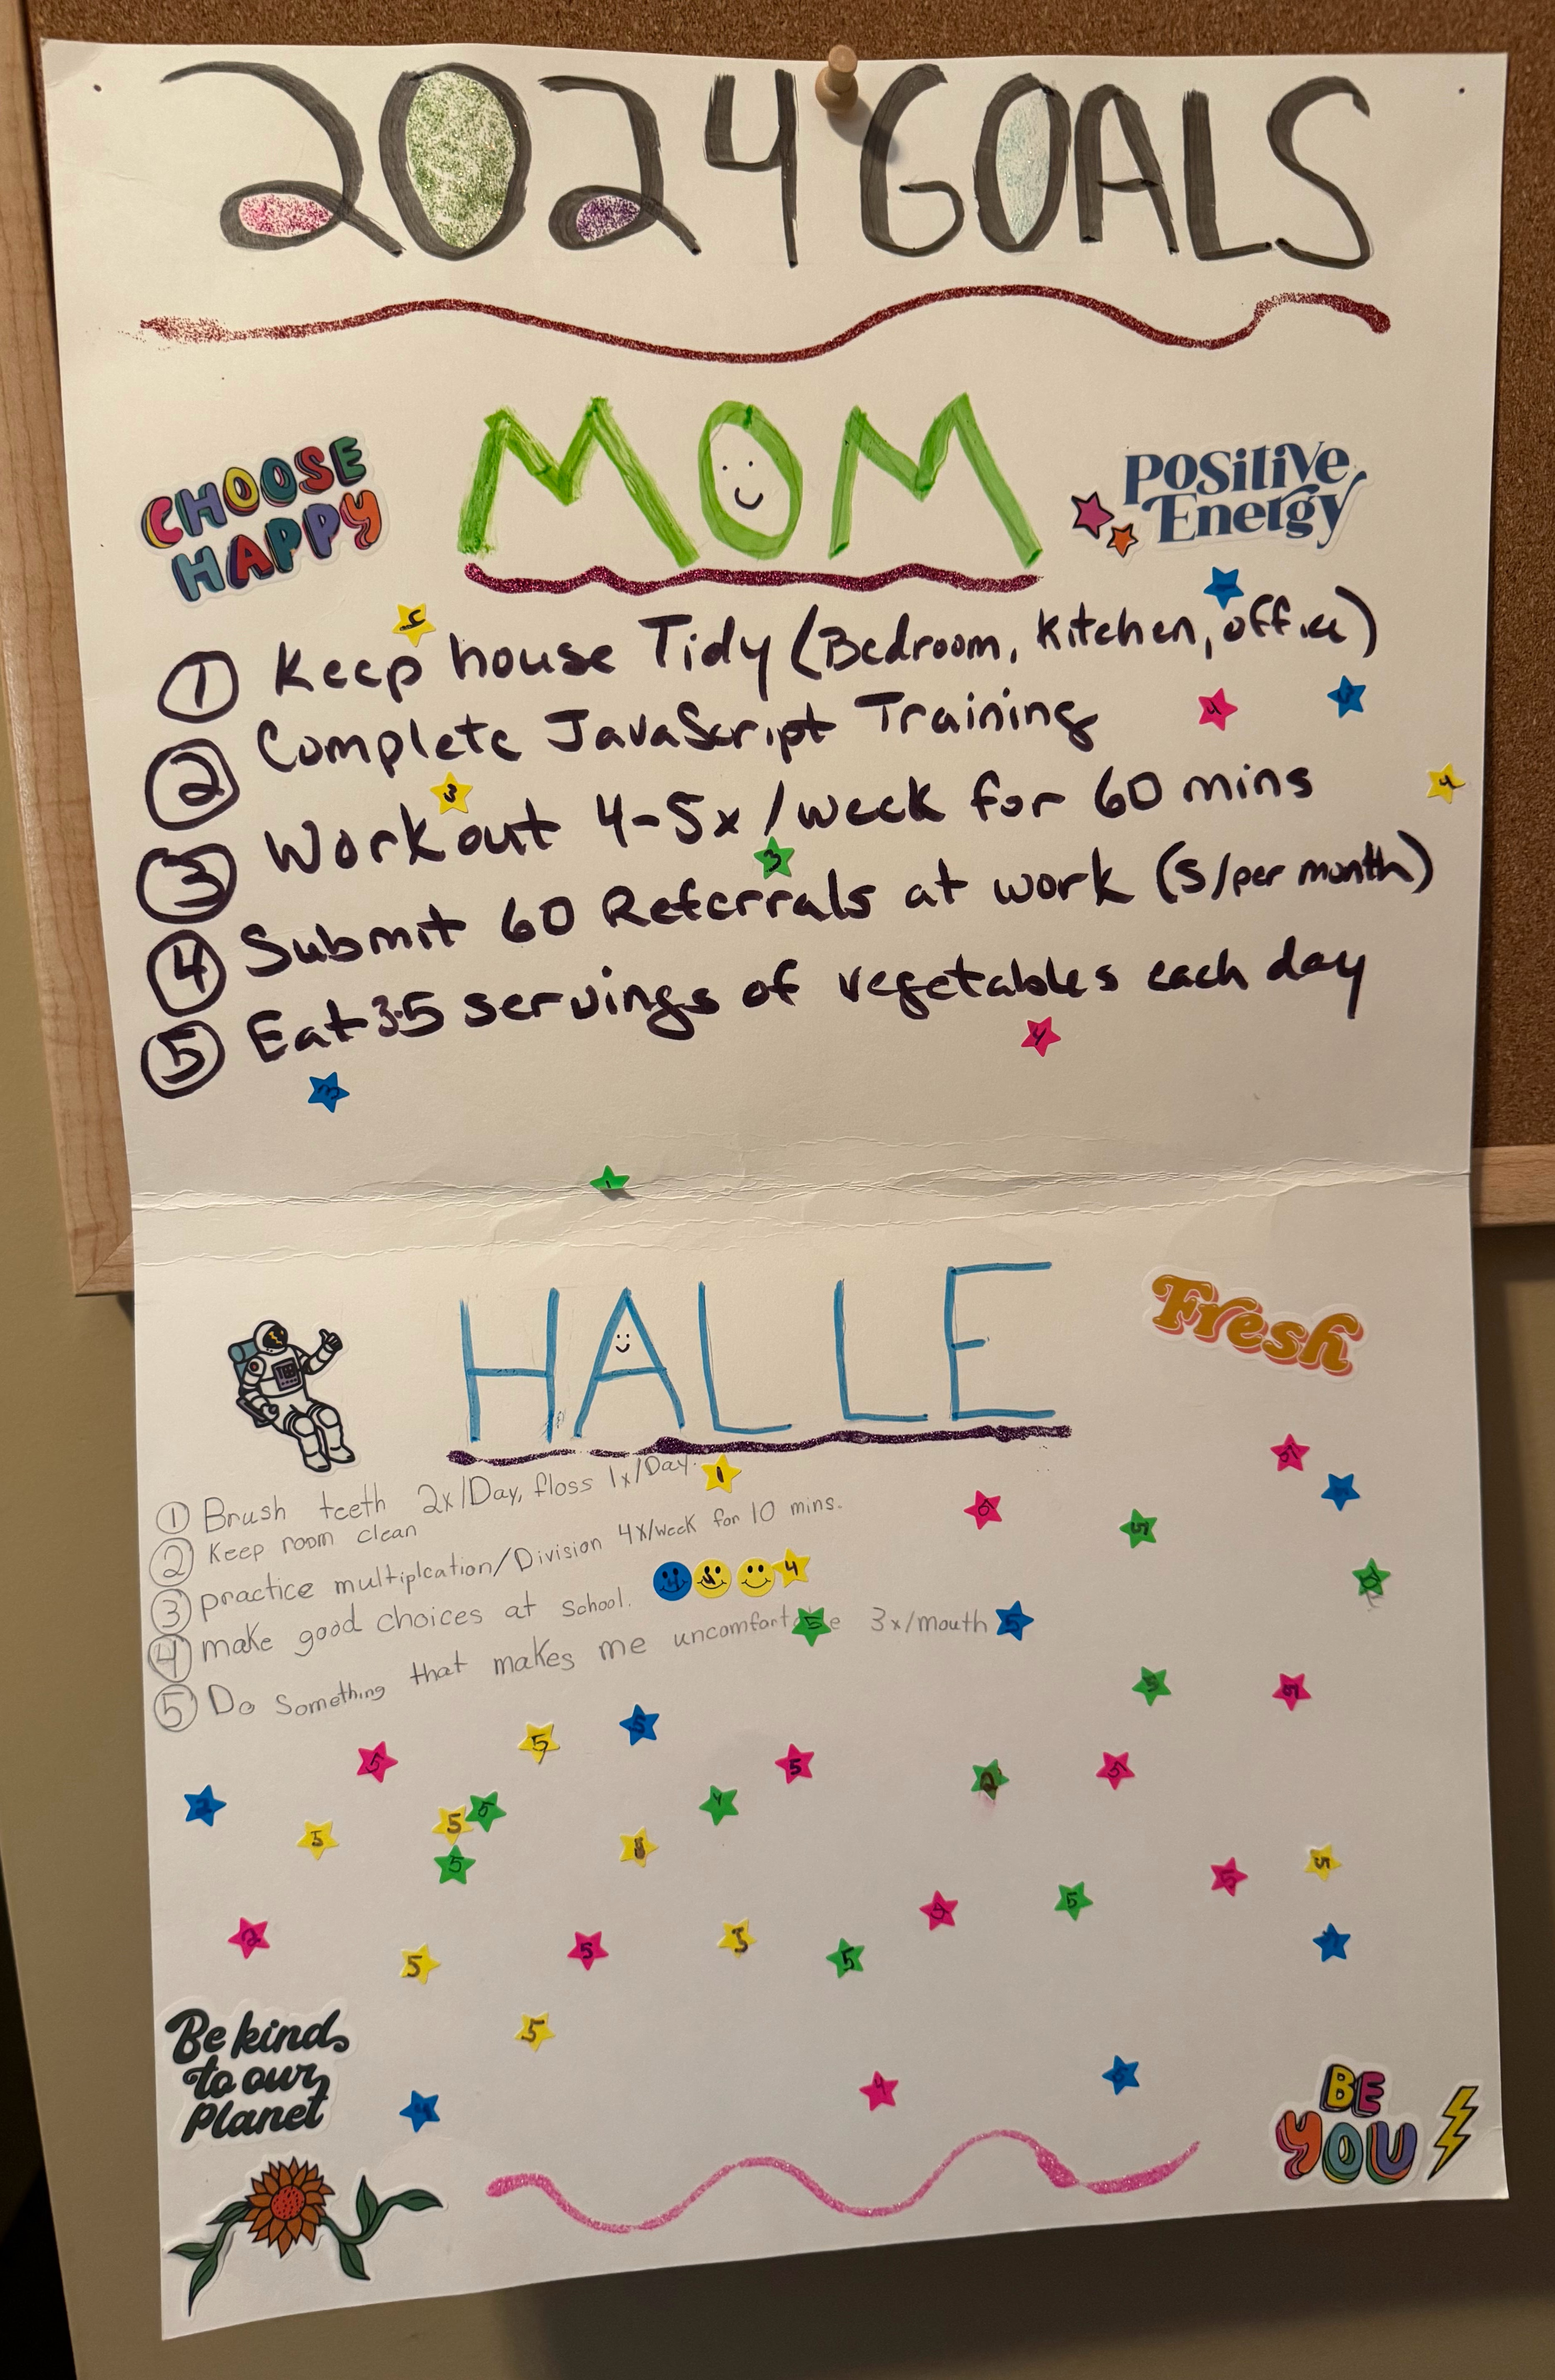 2024 GOALS
MOM
CHOOSE
HAPPY
Positive
Energy
① Keep house Tidy (Bedroom, Kitchen, office)
② Complete JavaScript Training
③ Workout 4-5x/week for 60 mins
④ Submit 60 Referrals at work (5/per month)
⑤ Eat 3-5 servings of vegetables each day
5
4
4
3
3
4
3
1
HALLE
Fresh
① Brush teeth 2x/Day, floss 1x/Day.
1
② Keep room clean
③ practice multiplcation/Division 4x/week for 10 mins.
④ make good choices at school.
4
⑤ Do something that makes me 3x/mouth
5
5
5
5
5
5
5
5
5
5
2
5
5
5
5
4
2
5
5
5
5
5
2
5
5
5
5
5
4
Be kind
to our
Planet
BE
YOU